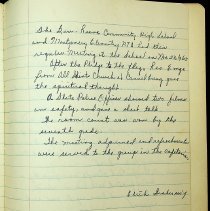 The Gum Community High School
and Montgomery Elementary PTA held their
regular meeting at the school on Thu
After the Pledge to the flag, Rev.
from All Saint Church in gave
the spiritual thought.
A State Police Officer showed two films
on safety, and gave a short talk.
The room count was won by the
seventh grade.
The meeting adjourned and refreshments
were served to the group in the cafeteria.